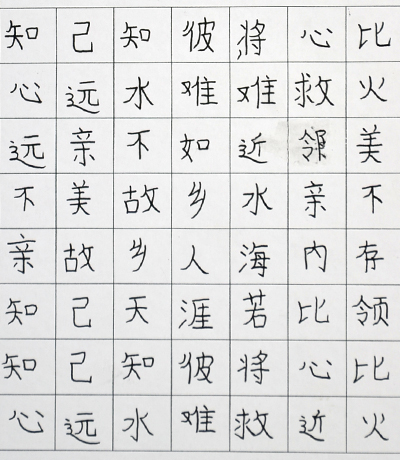 知己知彼将心比
心远水难难救火
远亲不如近邻美
不美故乡水亲不
亲故乡人海内存
知己天涯若比领
知己知彼将心比
心远水难救近火